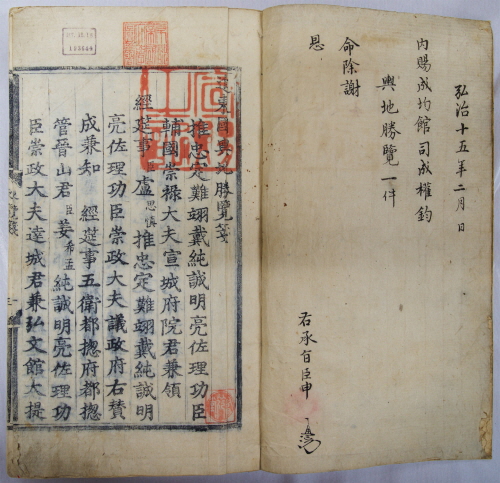 弘治十五年二月 日
內賜成均館司成權鈞
輿地勝覽一件
命除謝
恩
右承旨臣申
進東國輿地勝覽箋
推忠定難翊戴純誠明亮佐理功臣
輔國崇祿大夫宣城府院君兼領
經筵事臣盧思愼推忠定難翊戴純誠明
亮佐理功臣崇政大夫議政府右贊
成兼知 經筵事五衛都摠府都摠
管晉山君臣姜希孟純誠明亮佐理功
臣崇政大夫達城君兼弘文館大提